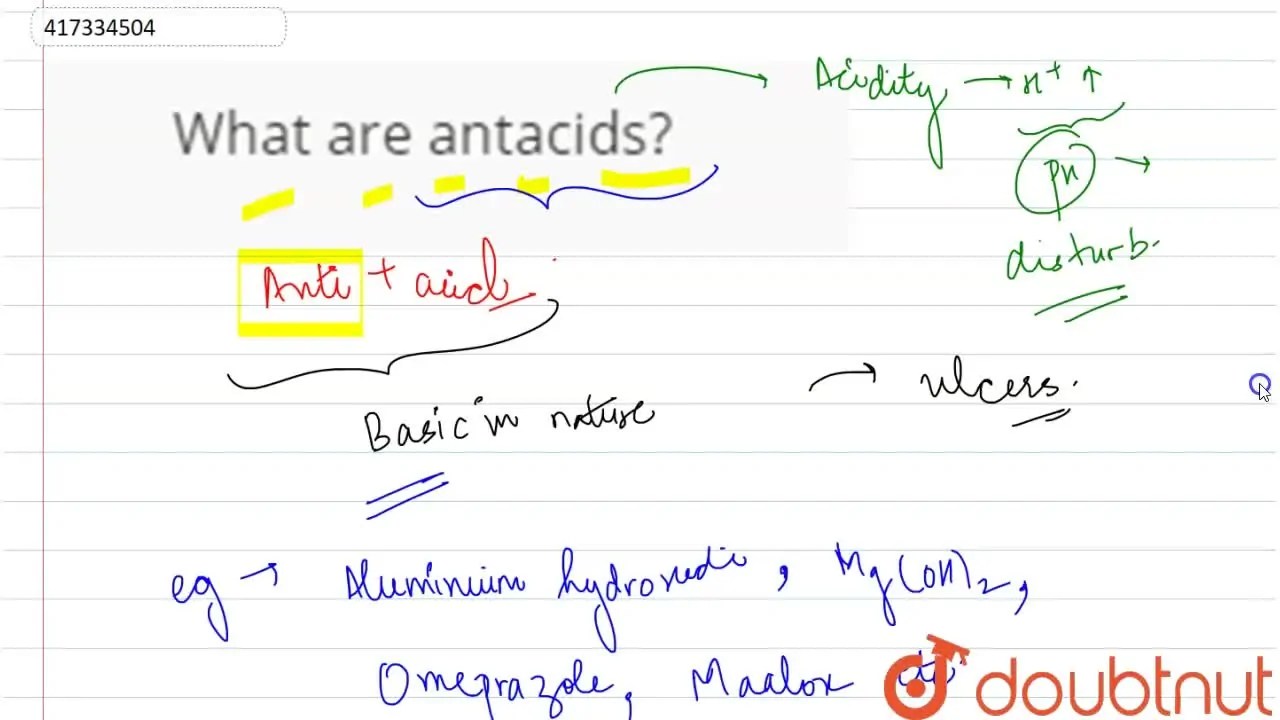 417334504
What are antacids?
Acidity → H+ ↑
pH →
disturb.
Anti + acid
→ ulcers.
Basic in nature
eg → Aluminium hydroxide, Mg(OH)2,
Omeprazole, Maalox etc
doubtnut